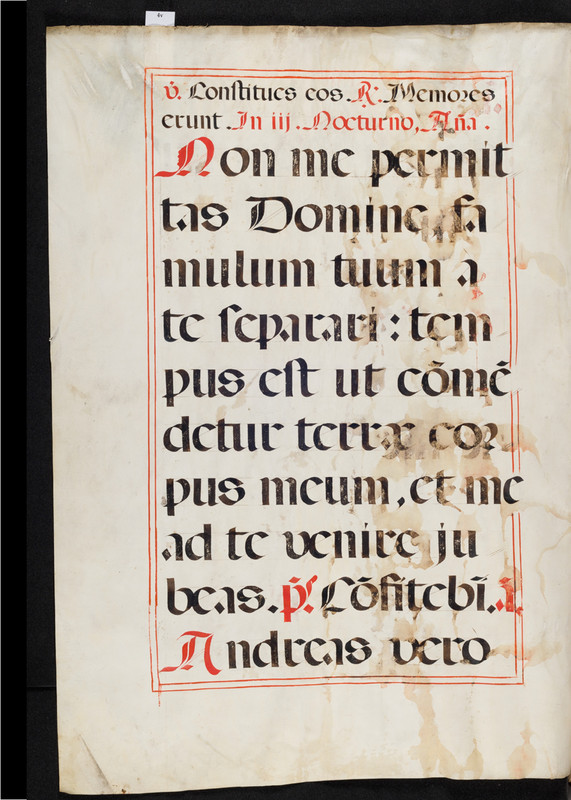 6v
℣. Conſtitues eos. ℟. Memores
erunt. In iij. Nocturno, Añа.
Non me permit
tas Domine, fa
mulum tuum a
te ſeparari: tem
pus eſt ut cōmē
detur terræ cor
pus meum, et me
ad te venire ju
beas. p̄s. Cōfitebī. ā.
Andreas vero